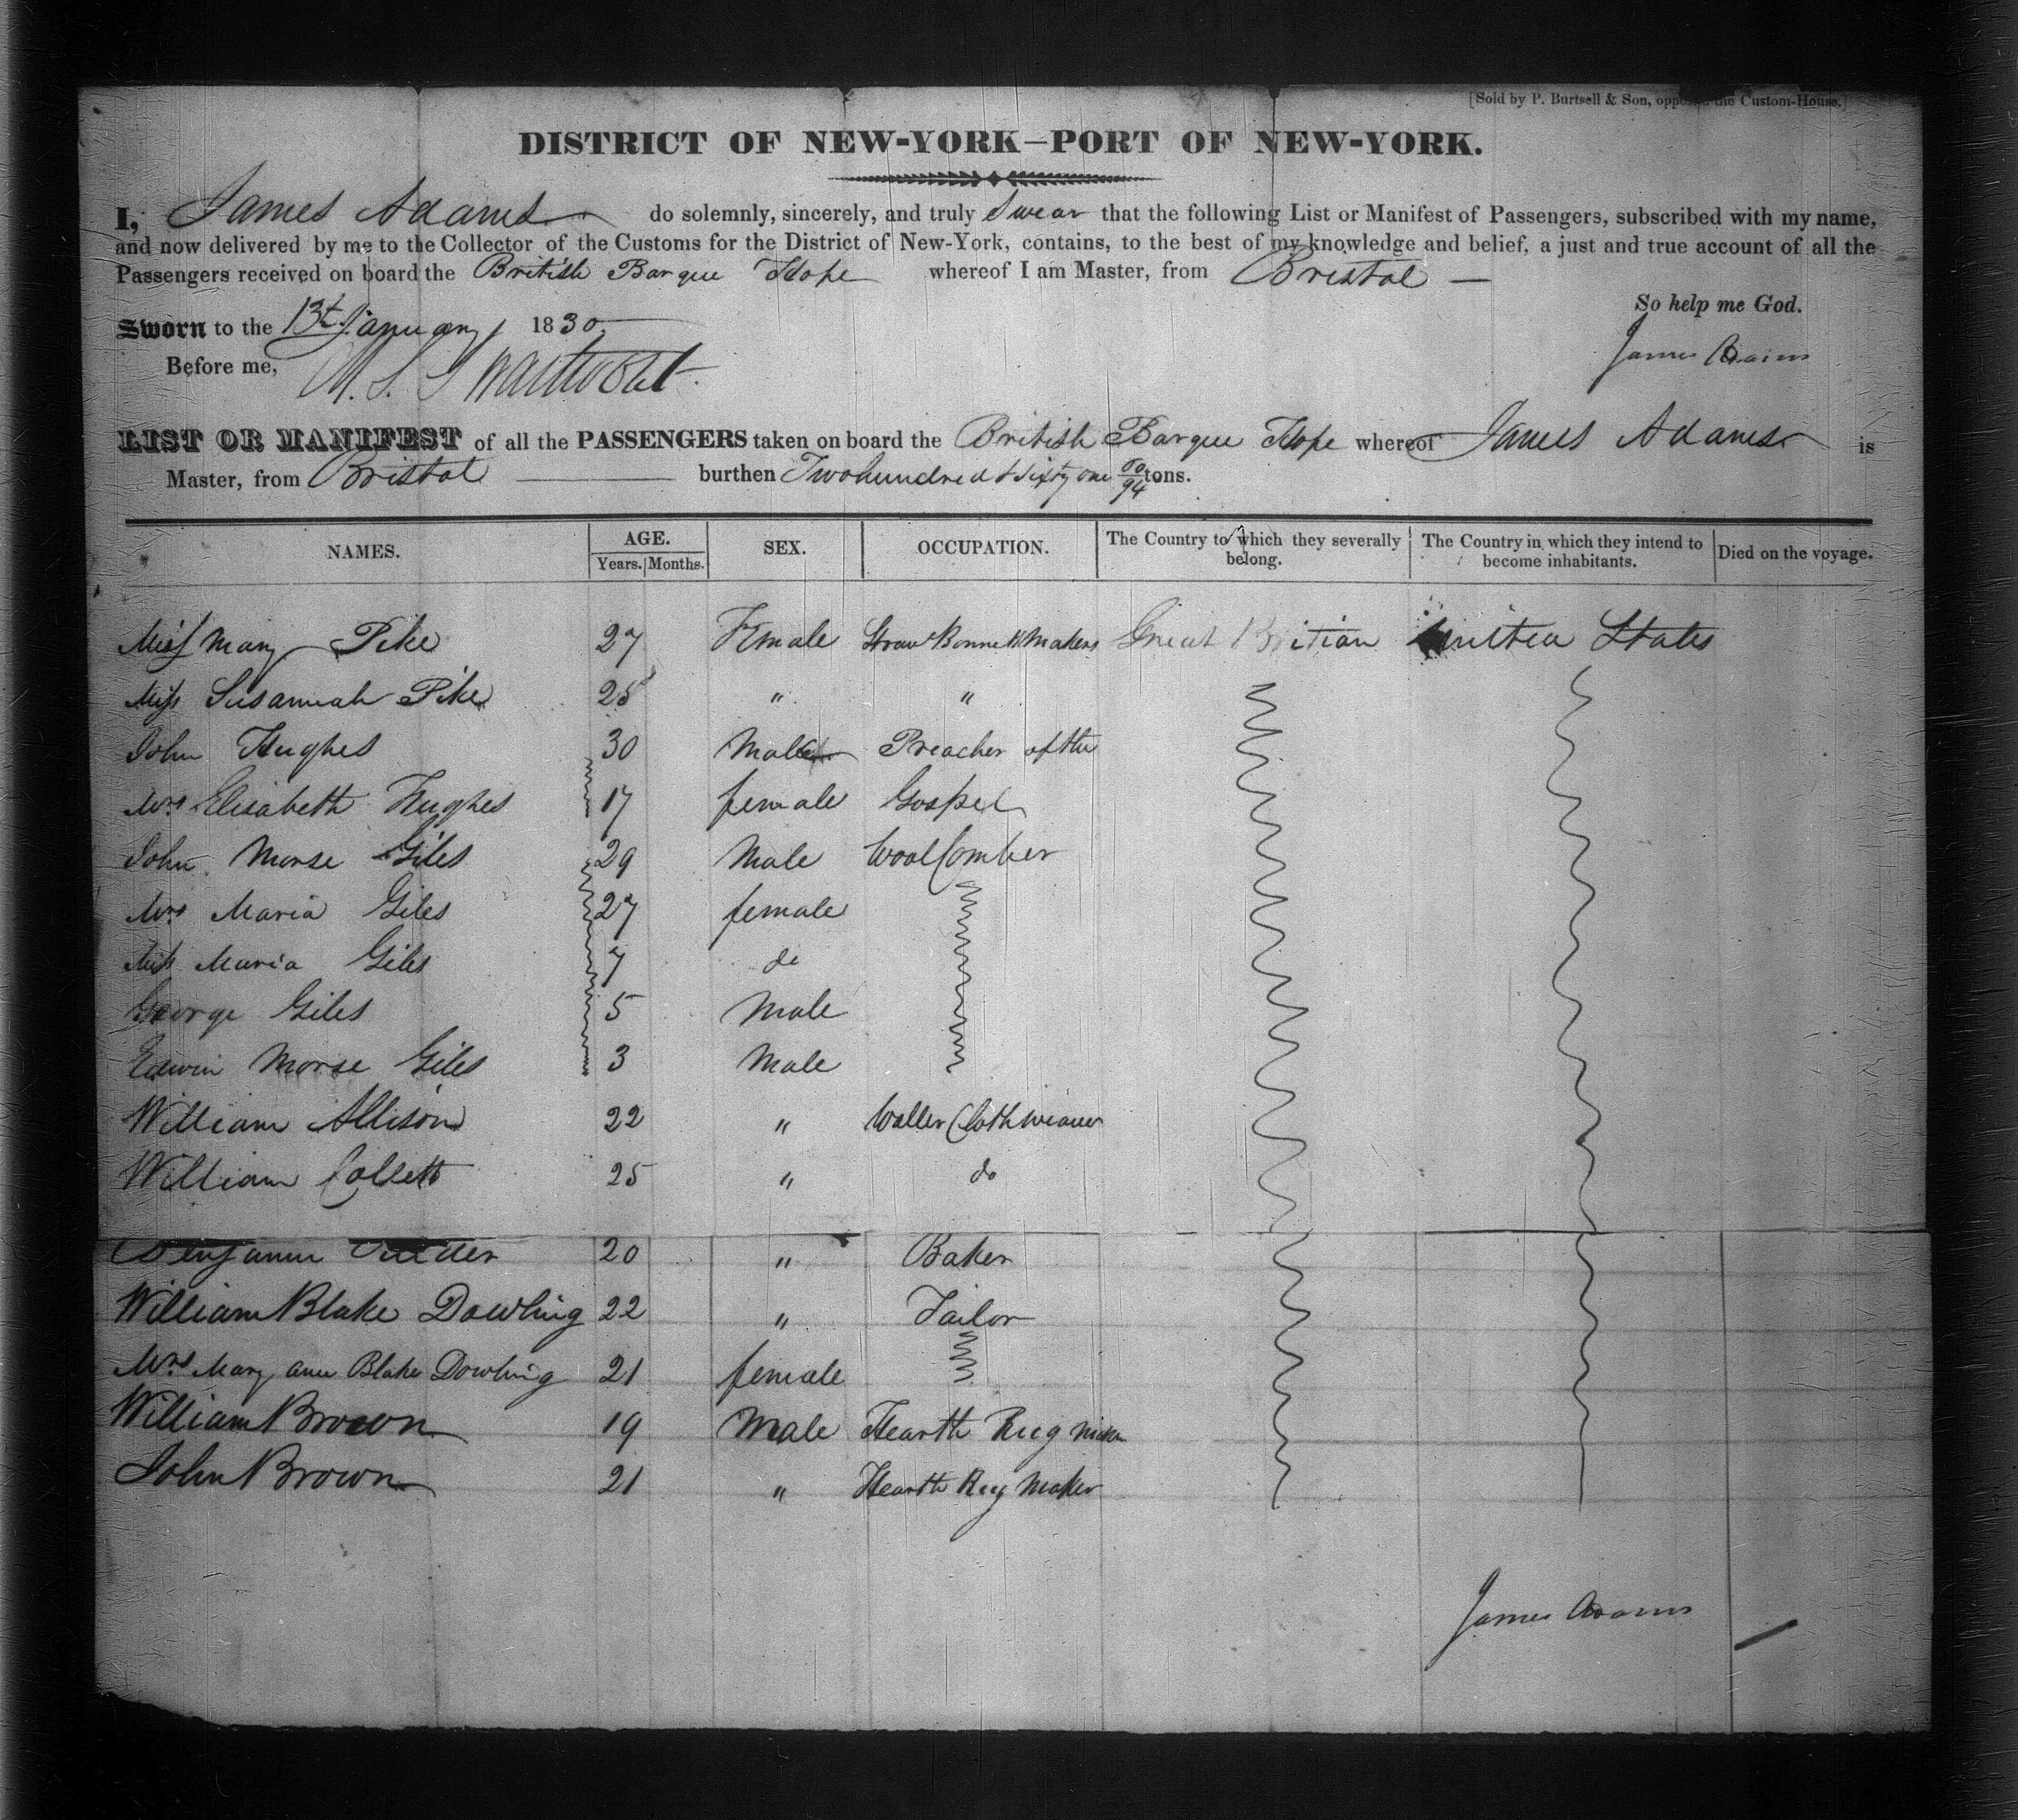 [Sold by P. Burtsell & Son, opposite the Custom-House.]
DISTRICT OF NEW-YORK—PORT OF NEW-YORK.
I, James Adams do solemnly, sincerely, and truly Swear that the following List or Manifest of Passengers, subscribed with my name,
and now delivered by me to the Collector of the Customs for the District of New-York, contains, to the best of my knowledge and belief, a just and true account of all the
Passengers received on board the British Barque Hope whereof I am Master, from Bristol —
So help me God.
Sworn to the 13t January 1830
James Adams
Before me, M. S. Swartwout
LIST OR MANIFEST of all the PASSENGERS taken on board the British Barque Hope whereof James Adams is
Master, from Bristol burthen Two hundred & Sixty one 60/94 tons.
NAMES. AGE. Years. Months. SEX. OCCUPATION. The Country to which they severally belong. The Country in which they intend to become inhabitants. Died on the voyage.
Miss Mary Pike 27 Female Straw Bonnett Makers Great Britian United States
Miss Susannah Pike 25 " "
John Hughes 30 Male Preacher of the
Mrs Elisabeth Hughes 17 female Gospel
John Morse Giles 29 Male Wool Comber
Mrs Maria Giles 27 female
Miss Maria Giles 7 do
George Giles 5 Male
Edwin Morse Giles 3 Male
William Allison 22 " Woller Cloth weaver
William Collett 25 " do
Benjamin 20 " Baker
William Blake Dowling 22 " Tailor
Mrs Mary ann Blake Dowling 21 female
William Brown 19 Male Hearth Rug Maker
John Brown 21 " Hearth Rug Maker
James Adams